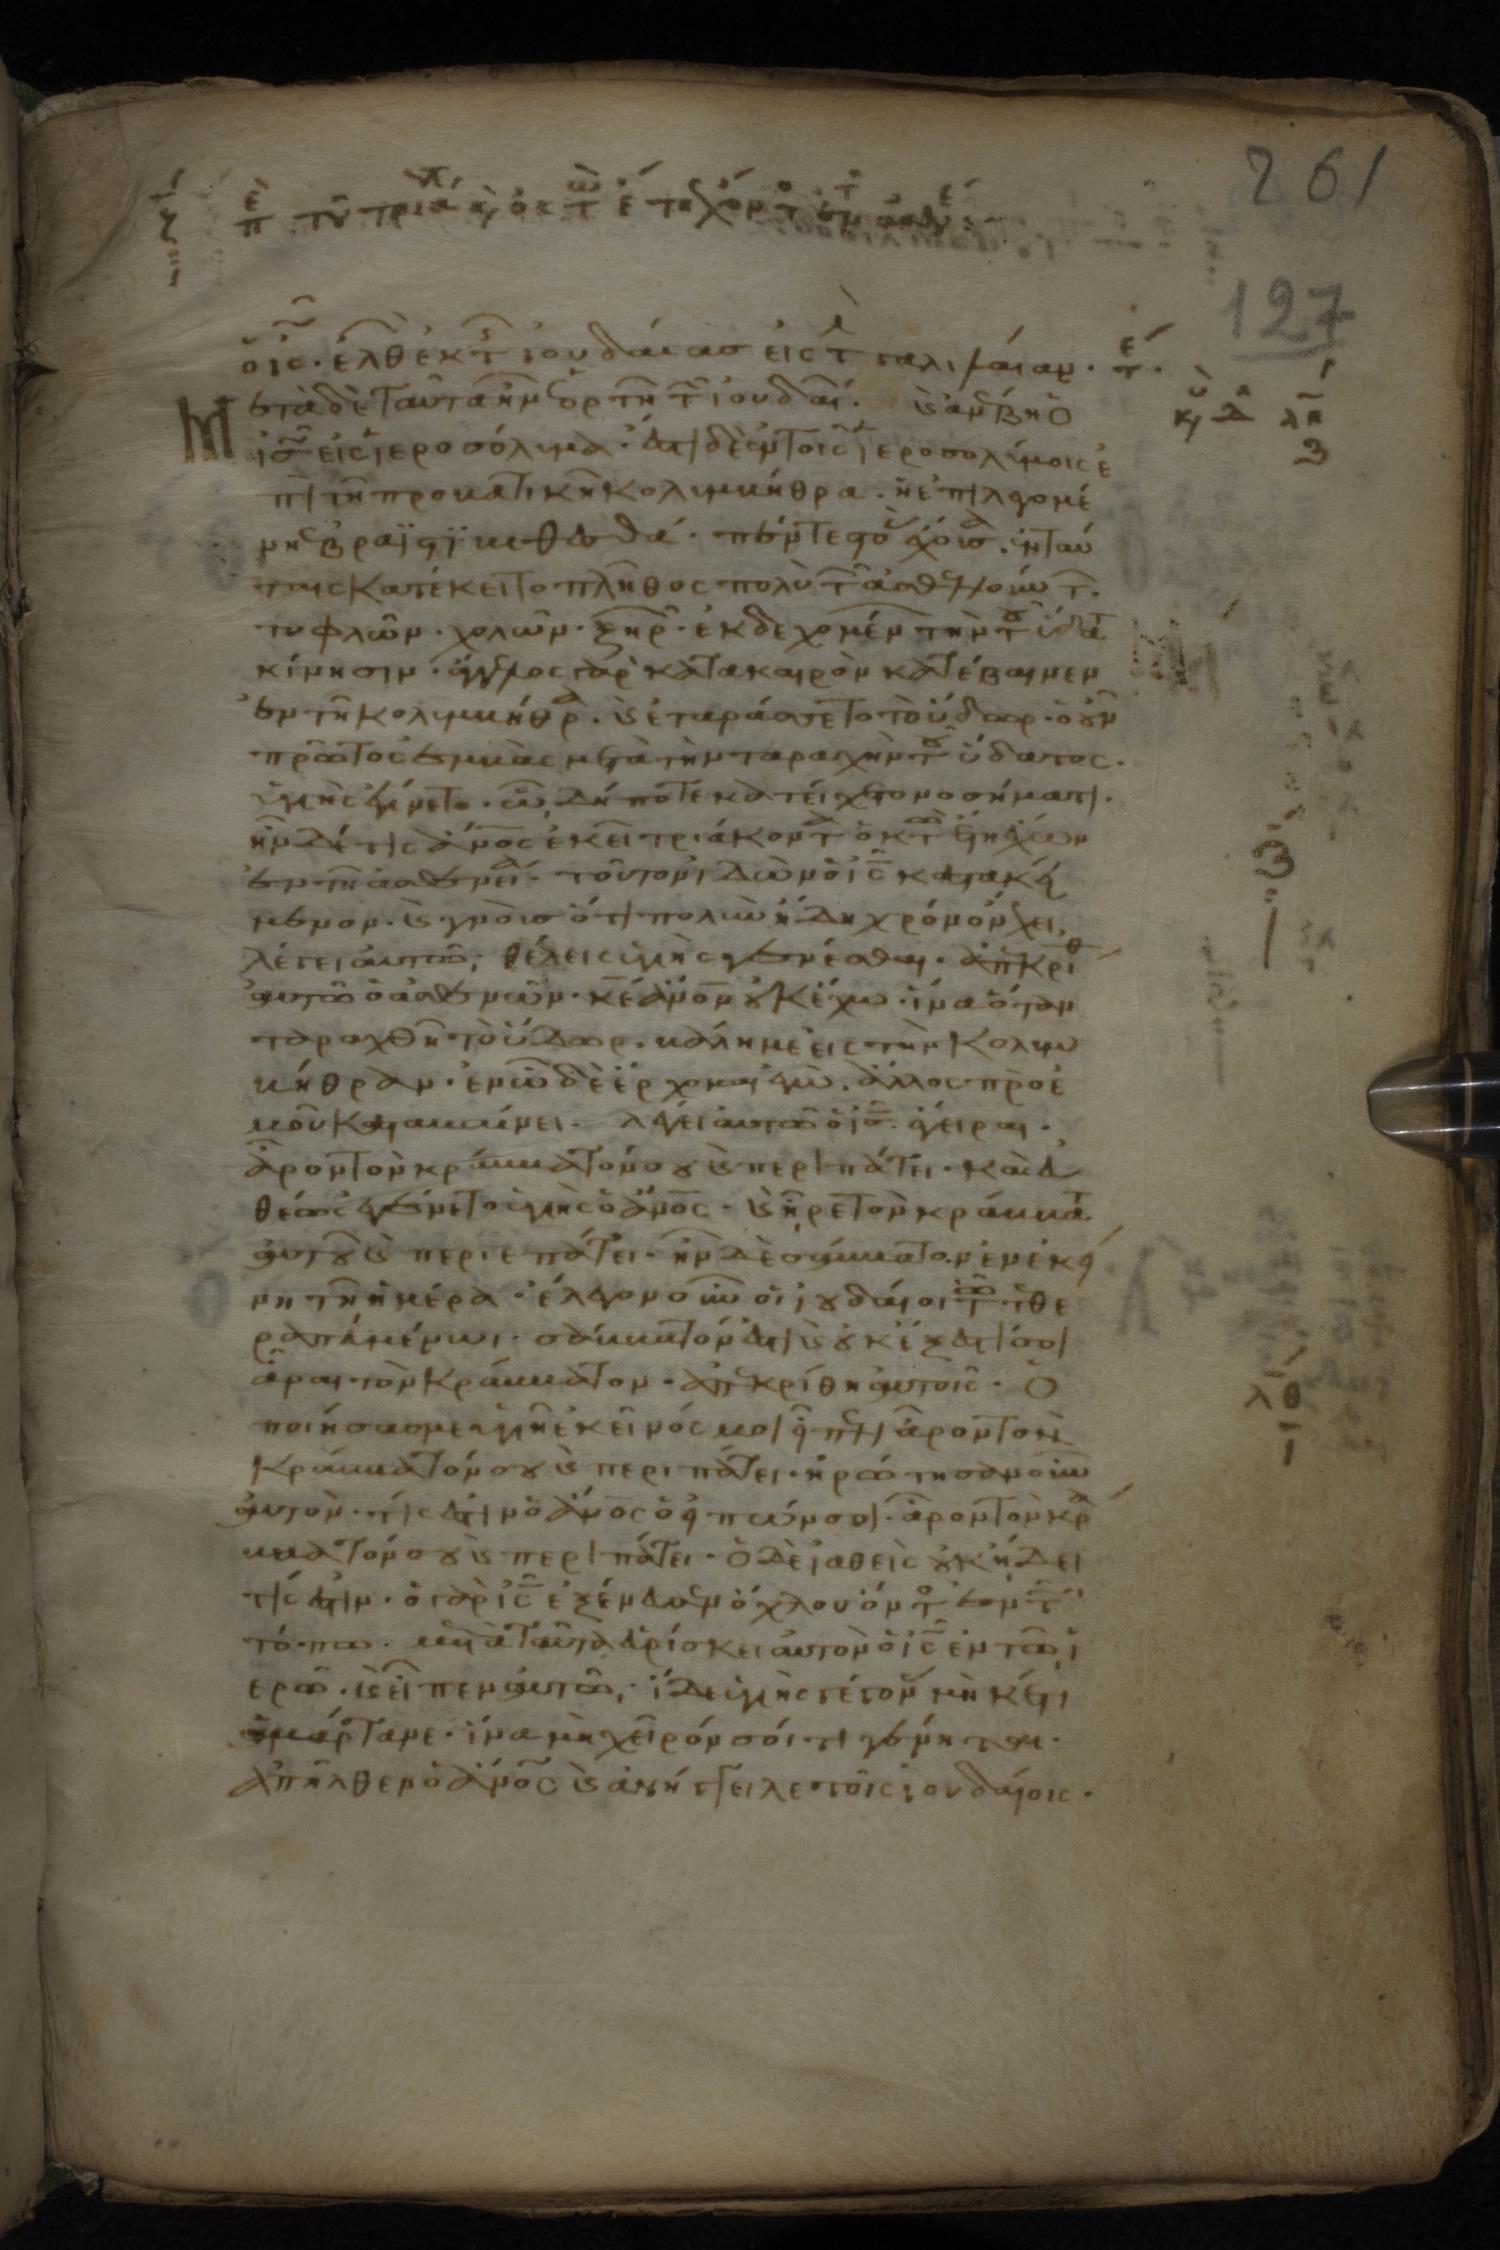 261
127
ζ ἐπ τοῦ τριακ κ ὀκτ ἔτη ἔχοντ ἐν τ ἀσθε
ὁ ις. ἐλθ ἐκ τ ἰουδαίασ εἰς τ γαλιλαίαν. τε
κυ Δ λη
Μετὰ δὲ ταῦτα ἦν ἑορτὴ τ ἰουδαί. κ ἀνέβη ὁ
ις εἰς ἱεροσόλυμα. ἔστι δὲ ἐν τοῖς ἱεροσολύμοις ἐ
πὶ τῆ προβατικῆ κολυμβήθρα. ἡ ἐπιλεγομέ
νη ἑβραϊστὶ βηθεσδά. πέντε στο ἔχουσ. ἐν ταύ
ταις κατέκειτο πλῆθος πολὺ τ ἀσθενούντ.
τυφλῶν. χολῶν. ξηρ. ἐκδεχομέν τὴν τοῦ ὕδατ
κίνησιν. ἄγγελος γὰρ κατα καιρὸν κατέβαινεν
ἐν τῆ κολυμβήθρ. κ ἐταράσσετο τὸ ὕδωρ. ὁ οὖν
πρῶτος ἐμβὰς μετὰ τὴν ταραχὴν τοῦ ὕδατος.
ὑγιὴς ἐγίνετο. ὧ δήποτε κατείχετο νοσήματι.
ἦν δέ τις ἄνος ἐκεῖ τριάκοντ ὀκτ ἔτη ἔχων
ἐν τῆ ἀσθενεί. τοῦτον ἰδὼν ὁ ις κατακεί
μενον. κ γνοὺσ ὅτι πολὺν ἤδη χρόνον ἔχει,
λέγει αὐτῶ, θέλεις ὑγιὴς γενέσθαι. ἀπεκρίθ
αὐτῶ ὁ ἀσθενῶν. κε ἄνον οὐκ ἔχω. ἵνα ὅταν
ταραχθῆ τὸ ὕδωρ. βάλη με εἰς τὴν κολυμ
βήθραν. ἐν ὧ δὲ ἔρχομαι ἐγὼ. ἄλλος πρὸ ἐ
μοῦ καταβαίνει. λέγει αὐτῶ ὁ ις. ἔγειραι.
ἆρον τὸν κράββατόν σου κ περιπάτει. καὶ εὐ
θέως ἐγένετο ὑγιὴς ὁ ἄνος. κ ἦρε τὸν κράββατ
αὐτοῦ κ περιεπάτει. ἦν δὲ σάββατον ἐν ἐκεί
νη τῆ ἡμέρα. ἔλεγον οὖν οἱ ἰουδαίοι τῶ τεθε
ραπευμένωι. σάββατόν ἐστι κ οὐκ ἔξεστί σοι
ἆραι τὸν κράββατον. ἀπεκρίθη αὐτοῖς. ὁ
ποιήσας με ὑγιῆ ἐκεῖνός μοι εἶπεν ἆρον τὸν
κράββατόν σου κ περιπάτει. ἠρώτησαν οὖν
αὐτὸν. τίς ἐστιν ὁ ἄνος ὁ εἰπών σοι. ἆρον τὸν κρα
βατόν σου κ περιπάτει. ὁ δὲ ἰαθεὶς οὐκ ἤδει
τίς ἐστιν. ὁ γὰρ ις ἐξένευσεν ὄχλου ὄντ ἐν τ
τόπω. μετὰ ταῦτα εὑρίσκει αὐτὸν ὁ ις ἐν τῶ ἱ
ερῶ. κ εἶπεν αὐτῶ, ἴδε ὑγιὴς γέγον μηκέτι
ἁμάρτανε. ἵνα μὴ χεῖρόν σοί τι γένηται.
ἀπῆλθεν ὁ ἄνος κ ἀνήγγειλε τοῖς ἰουδαίοις.
λθ